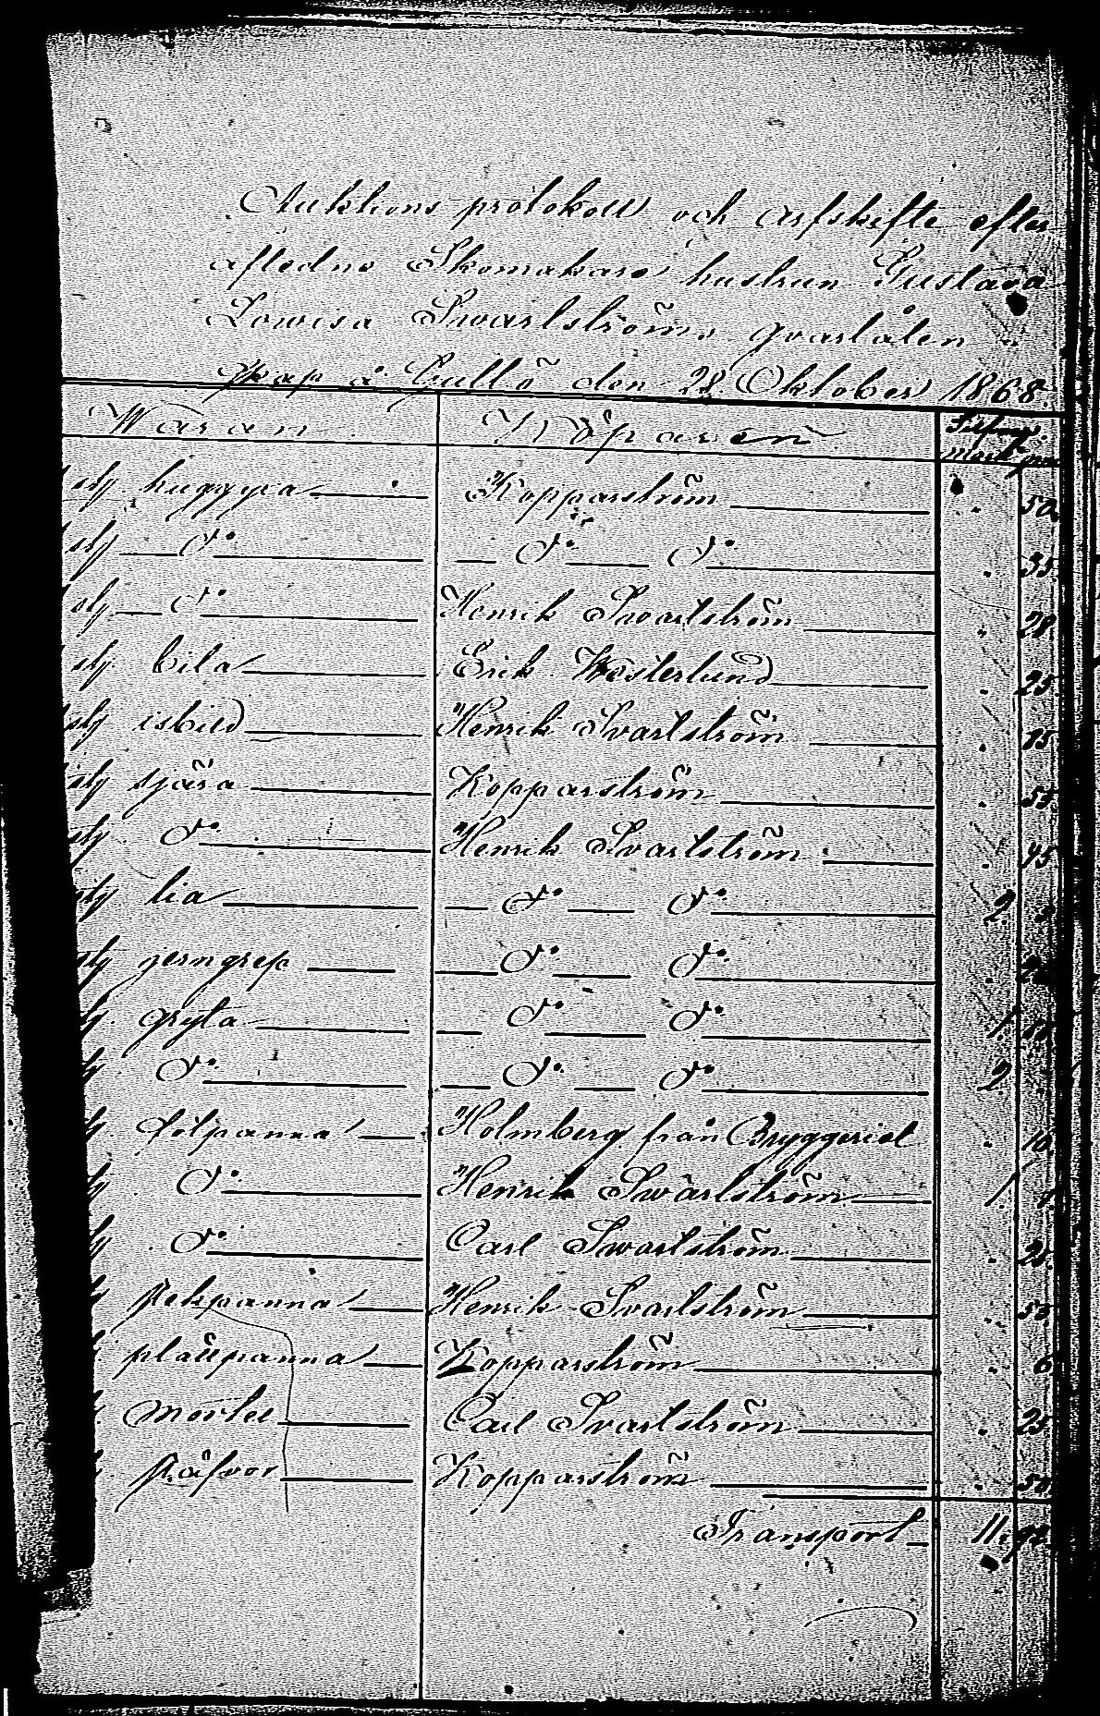 Auktions protokoll och arfskifte efter
afledne Skomakare hustrun Gustava
Lowisa Swartström qvarlåten
skap å Gullö den 28 Oktober 1868.
Waran Köparen Silfver
mark pni
st huggyxa Kopparström " 50
st d:o d:o d:o " 35
st d:o Henrik Svartström " 28
st bila Erik Westerlund " 25
st isbill Henrik Svartström " 15
st sjära Kopparström "
st d:o Henrik Svartström " 45
st lia d:o d:o 2
st jerngrep d:o d:o "
st gryta d:o d:o 1
st d:o d:o d:o 2 "
st fotpanna Holmberg från Bryggeriet "
st d:o Henrik Swartström 1
st d:o Carl Swartström "
st stekpanna Henrik Svartström "
st plättpanna Kopparström " 6
st mortel Carl Svartström " 25
st Kopparström " 50
Transport 11